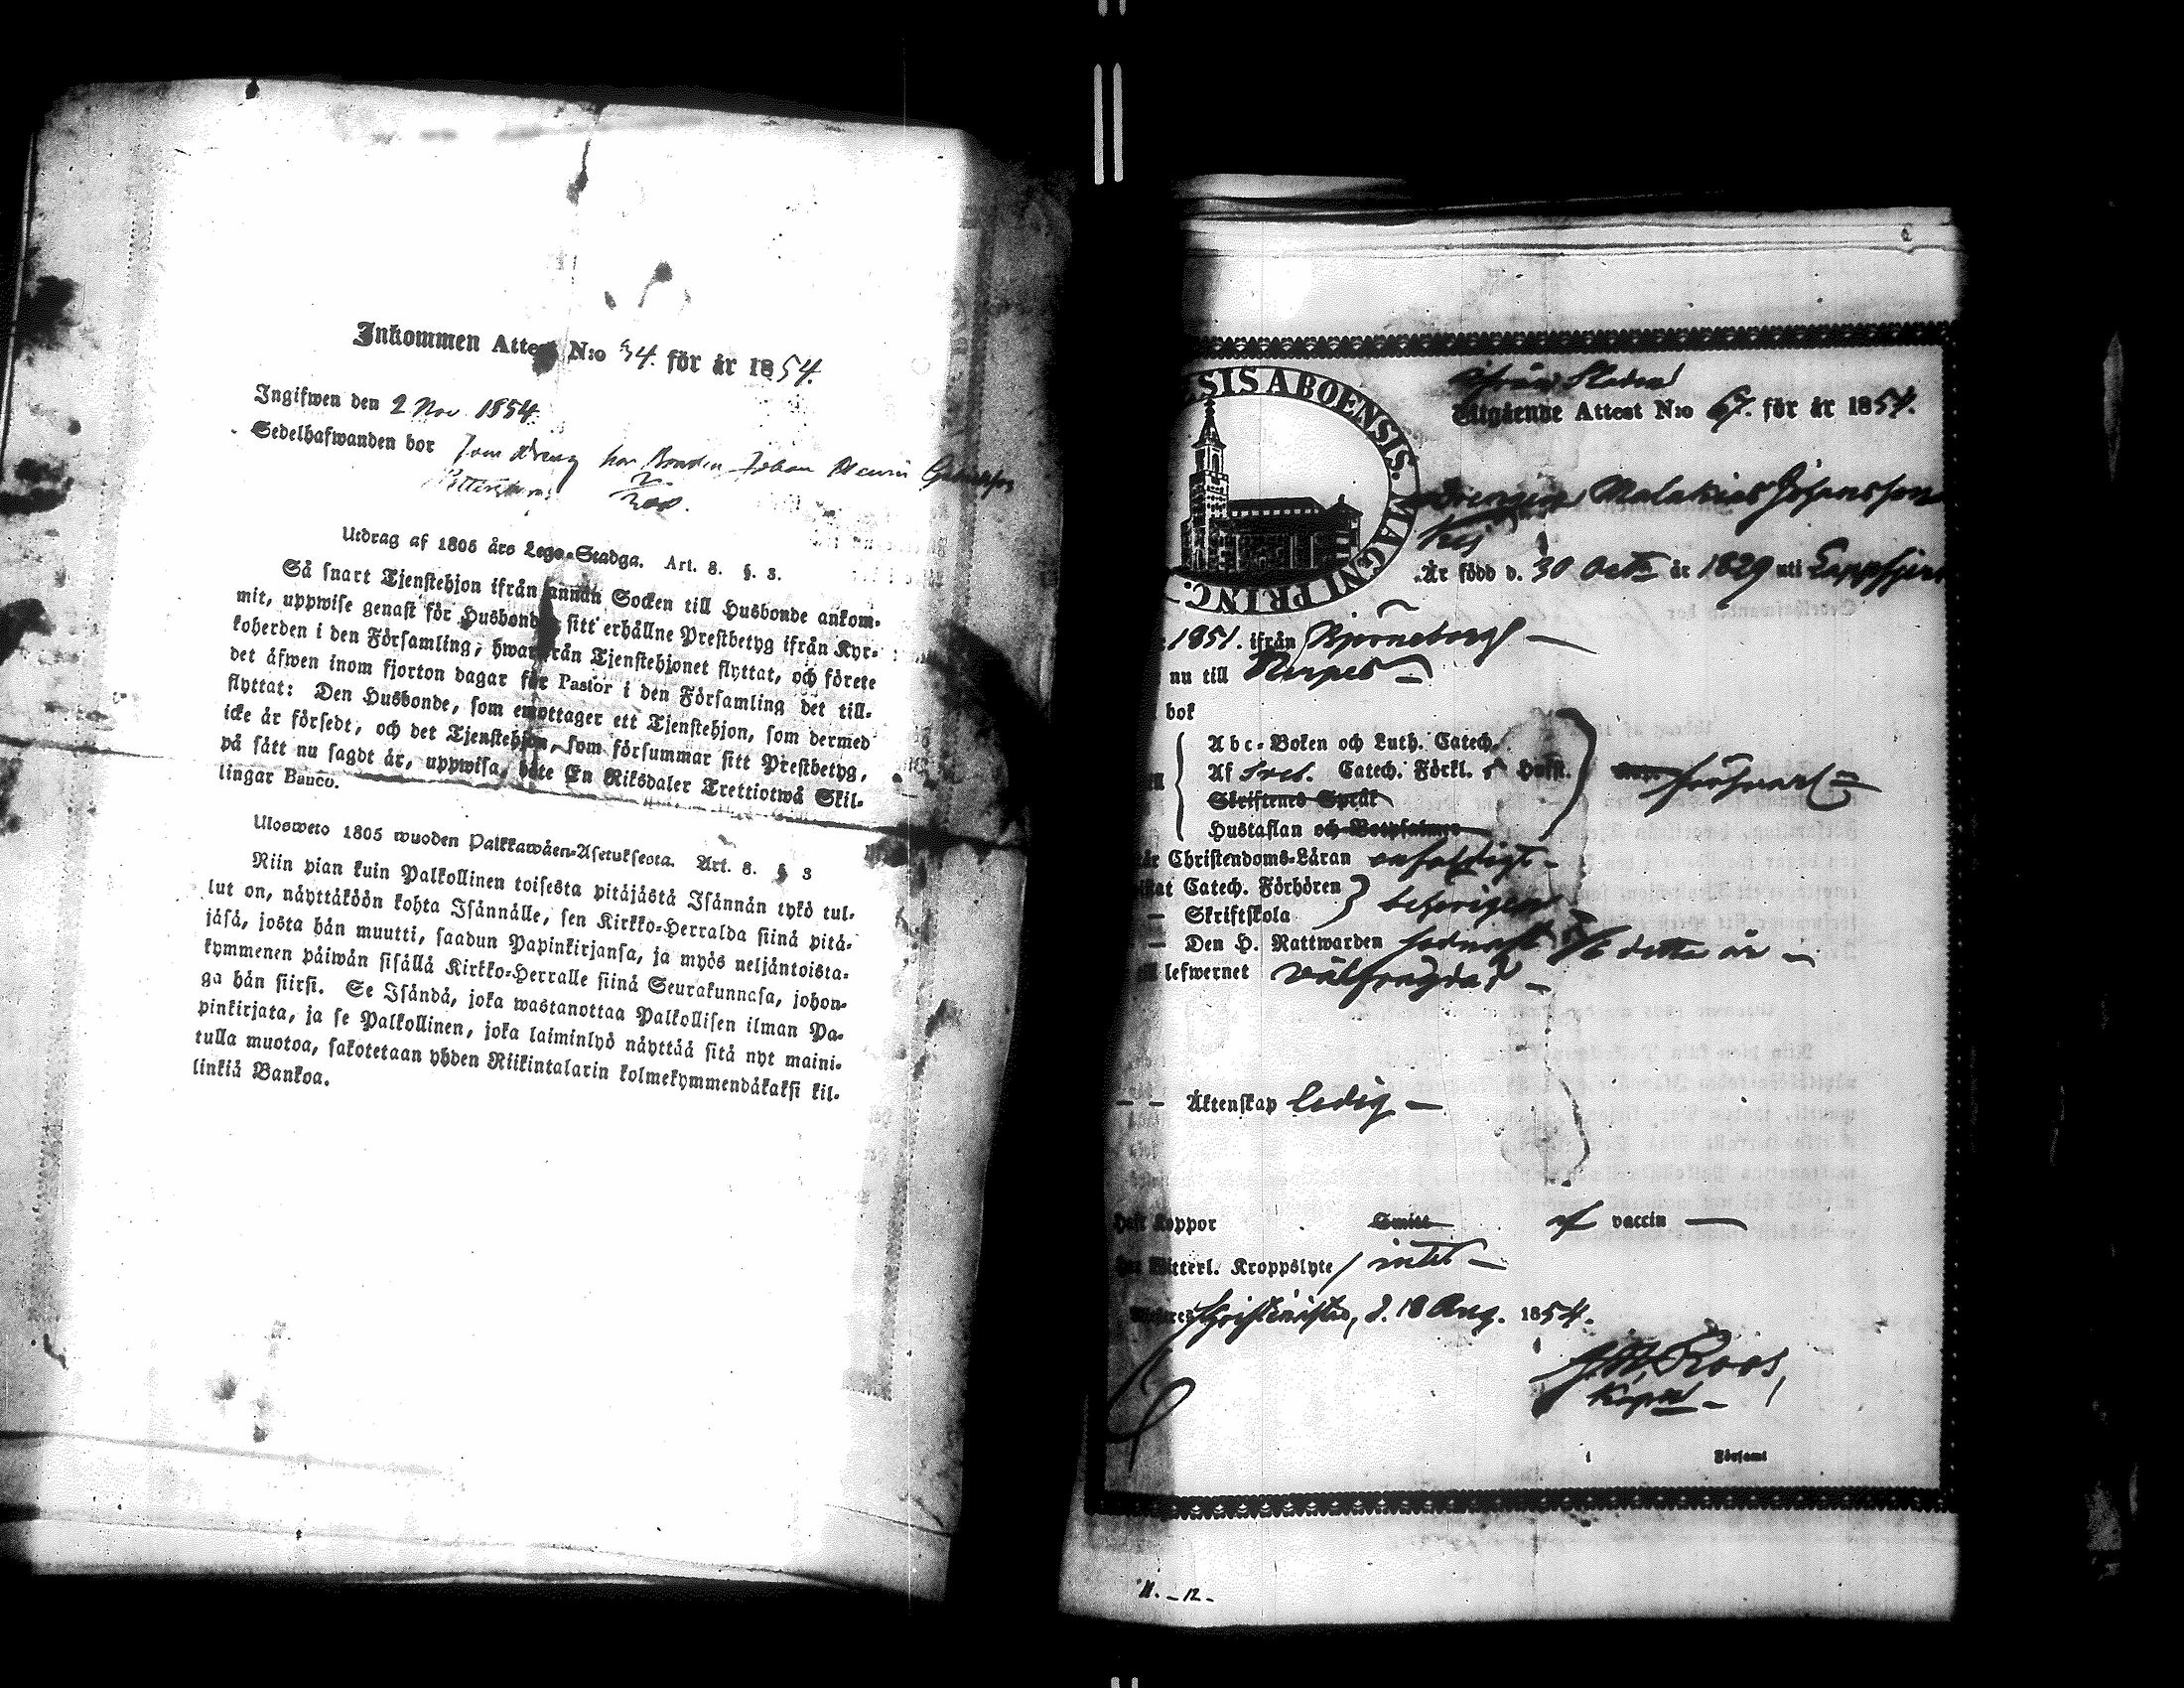 Inkommen Attest N:o 34. för år 1854.
Ingifwen den 2 Nov 1854.
Sedelhafwanden bor som dreng hos Bonden Johan Henric
Utdrag af 1805 års Lego-Stadga. Art. 8. §. 3.
Så snart Tjenstehjon ifrån annan Socken till Husbonde ankom-
mit, uppwise genast för Husbonden sitt erhållne Prestbetyg ifrån Kyr-
koherden i den Församling, hwarifrån Tjenstehjonet flyttat, och förete
det äfwen inom fjorton dagar för Pastor i den Församling det till-
flyttat: Den Husbonde, som emottager ett Tjenstehjon, som dermed
icke är försedt, och det Tjenstehjon, som försummar sitt Prestbetyg,
på sätt nu sagdt är, uppwisa, böte En Riksdaler Trettiotwå Skil-
lingar Banco.
Ulosweto 1805 wuoden Palkkawäen-Asetuksesta. Art. 8. § 3
Niin pian kuin Palkollinen toisesta pitäjästä Isännän tykö tul-
lut on, näyttäköön kohta Isännälle, sen Kirkko-Herralda siinä pitä-
jäsä, josta hän muutti, saadun Papinkirjansa, ja myös neljäntoista-
kymmenen päiwän sisällä Kirkko-Herralle siinä Seurakunnasa, johon-
ga hän siirsi. Se Isändä, joka wastanottaa Palkollisen ilman Pa-
pinkirjata, ja se Palkollinen, joka laiminlyö näyttää sitä nyt maini-
tulla muotoa, sakotetaan yhden Riikintalarin kolmekymmendäkaksi kil-
linkiä Bankoa.
SIS ABOENSIS. MAGNI PRINC.
ifrån Staden
Utgående Attest N:o 67. för år 1854.
Drengen Malakias Johansson
Är född d. 30 Octr år 1829 uti Lappfjerd
1851. ifrån Björneborg
nu till Nerpes
bok
Abc-Boken och Luth. Catech.
Af Sveb. Catech. Förkl. Hufst. försvarl
Skriftenes Språk
Hustaflan och Botpsalmer
är Christendoms-Läran enfaldigt
Catech. Förhören
— Skriftskola behörigen
— Den H. Nattwarden sednast detta år
lefwernet välfrägdad
— — Äktenskap ledig
Haft Koppor Smitt af vaccin
Witterl. Kroppslyte intet
Christinestad, d. 18 Aug. 1854.
Roos,
Kapel
i Församl
11. - 12 -